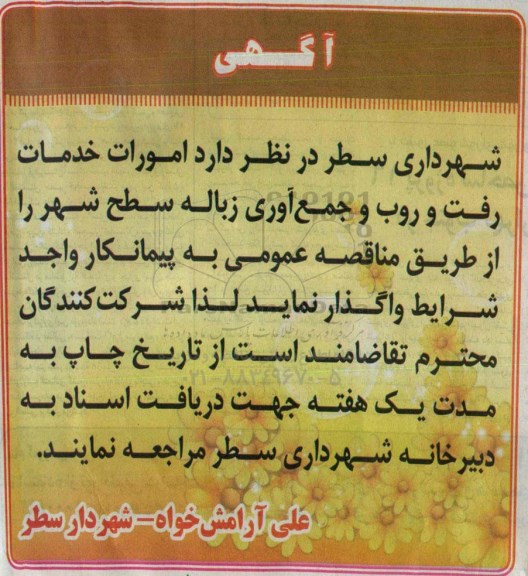 آگهی
شهرداری سطر در نظر دارد امورات خدمات
رفت و روب و جمع‌آوری زباله سطح شهر را
از طریق مناقصه عمومی به پیمانکار واجد
شرایط واگذار نماید لذا شرکت‌کنندگان
محترم تقاضامند است از تاریخ چاپ به
مدت یک هفته جهت دریافت اسناد به
دبیرخانه شهرداری سطر مراجعه نمایند.
علی آرامش‌خواه – شهردار سطر